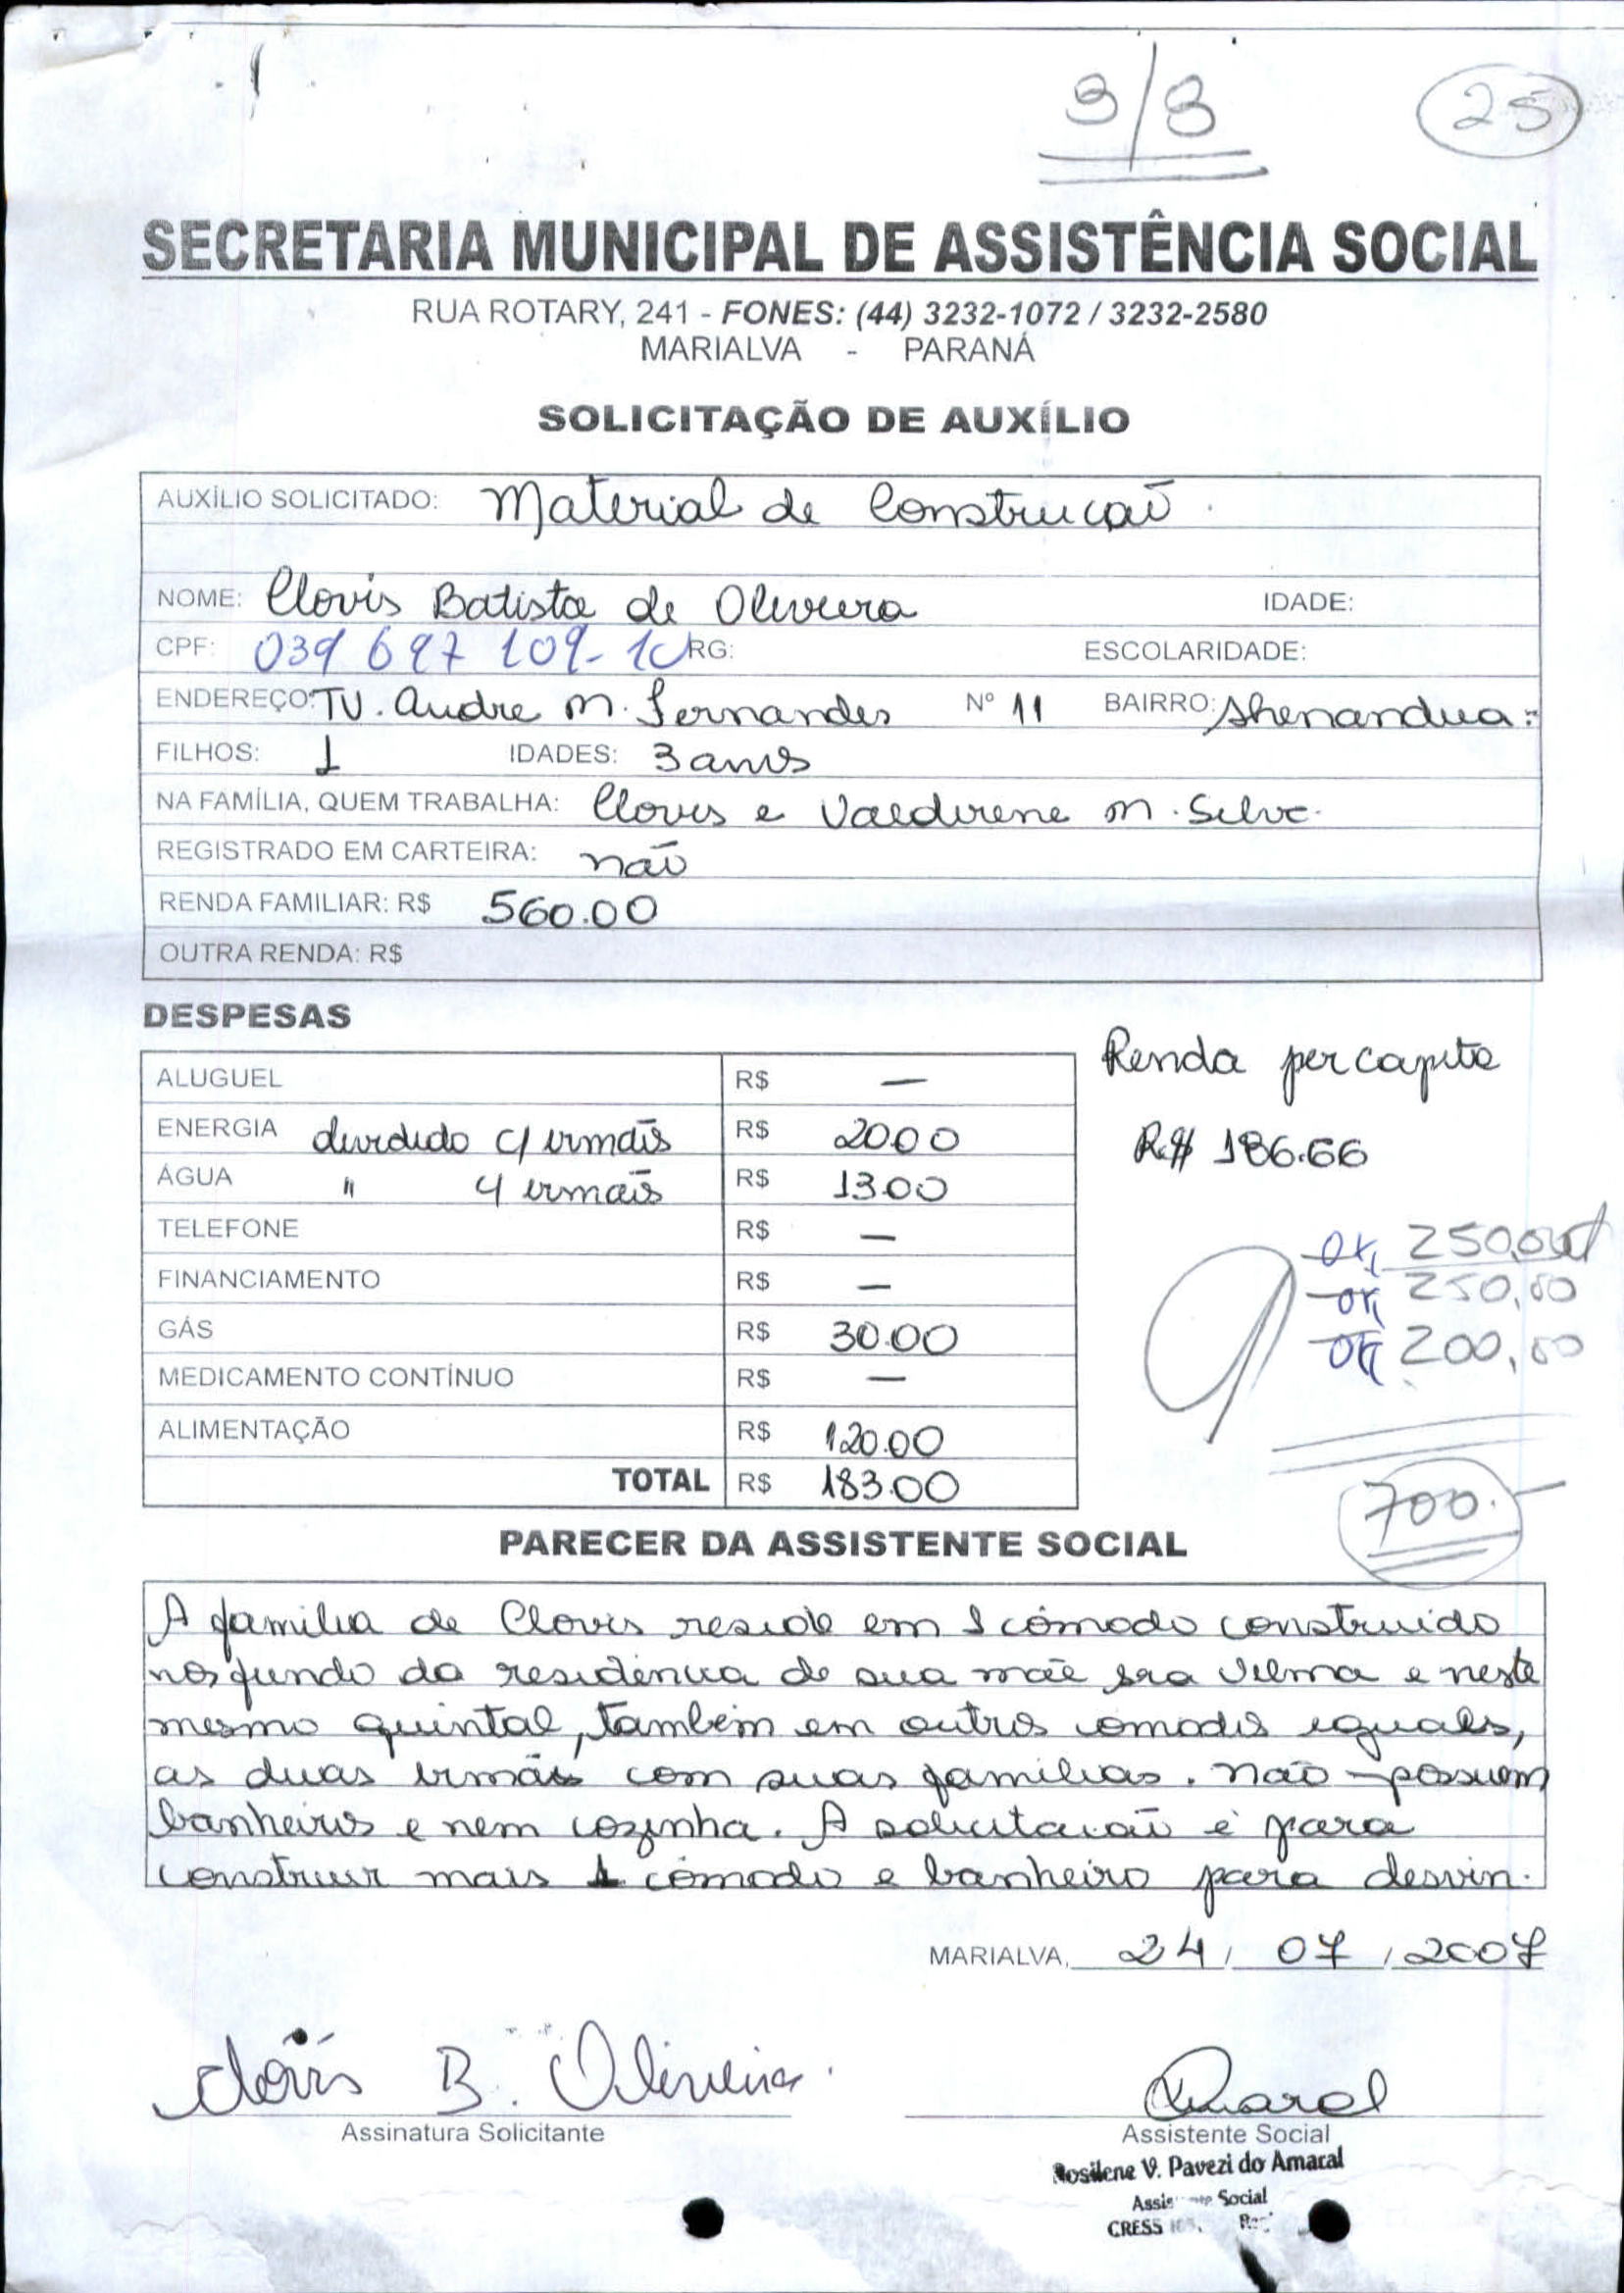 3/3
25
SECRETARIA MUNICIPAL DE ASSISTÊNCIA SOCIAL
RUA ROTARY, 241 - FONES: (44) 3232-1072 / 3232-2580
MARIALVA - PARANÁ
SOLICITAÇÃO DE AUXÍLIO
AUXÍLIO SOLICITADO: Material de Construção.
NOME: Clovis Batista de Oliveira IDADE:
CPF: 039 697 109-10 RG: ESCOLARIDADE:
ENDEREÇO: TV. Andre M. Fernandes Nº 11 BAIRRO: Shenandua.
FILHOS: 1 IDADES: 3 anos
NA FAMÍLIA, QUEM TRABALHA: Clovis e Valdirene M. Silva.
REGISTRADO EM CARTEIRA: não
RENDA FAMILIAR: R$ 560.00
OUTRA RENDA: R$
DESPESAS
Renda per capita
R$ 186.66
ALUGUEL R$ —
ENERGIA dividido c/ irmãs R$ 20.00
ÁGUA " c/ irmãs R$ 13.00
TELEFONE R$ —
FINANCIAMENTO R$ —
GÁS R$ 30.00
MEDICAMENTO CONTÍNUO R$ —
ALIMENTAÇÃO R$ 120.00
TOTAL R$ 183.00
ok 250,00
ok 250,00
ok 200,00
700.-
PARECER DA ASSISTENTE SOCIAL
A familia de Clovis reside em 1 cômodo construido
nos fundo da residência de sua mãe sra Vilma e neste
mesmo quintal, também em outros comodos iguais,
as duas irmãs com suas familias. Não possuem
banheiros e nem cozinha. A solicitação é para
construir mais 1 cômodo e banheiro para desvin.
MARIALVA, 24 / 07 / 2007
Clovis B. Oliveira.
Assinatura Solicitante
Amaral
Assistente Social
Rosilene V. Pavezi do Amaral
Assistente Social
CRESS